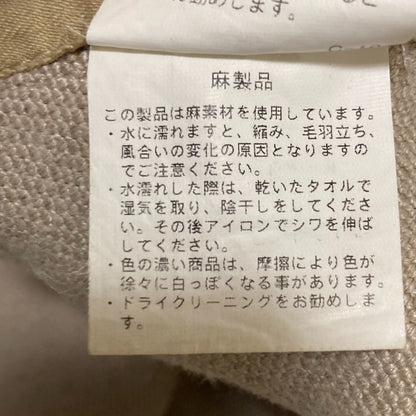 お勧めします。
麻製品
この製品は麻素材を使用しています。
・水に濡れますと、縮み、毛羽立ち、
風合いの変化の原因となりますの
でご注意ください。
・水濡れした際は、乾いたタオルで
湿気を取り、陰干しをしてくださ
い。その後アイロンでシワを伸ば
してください。
・色の濃い商品は、摩擦により色が
徐々に白っぽくなる事があります。
・ドライクリーニングをお勧めしま
す。